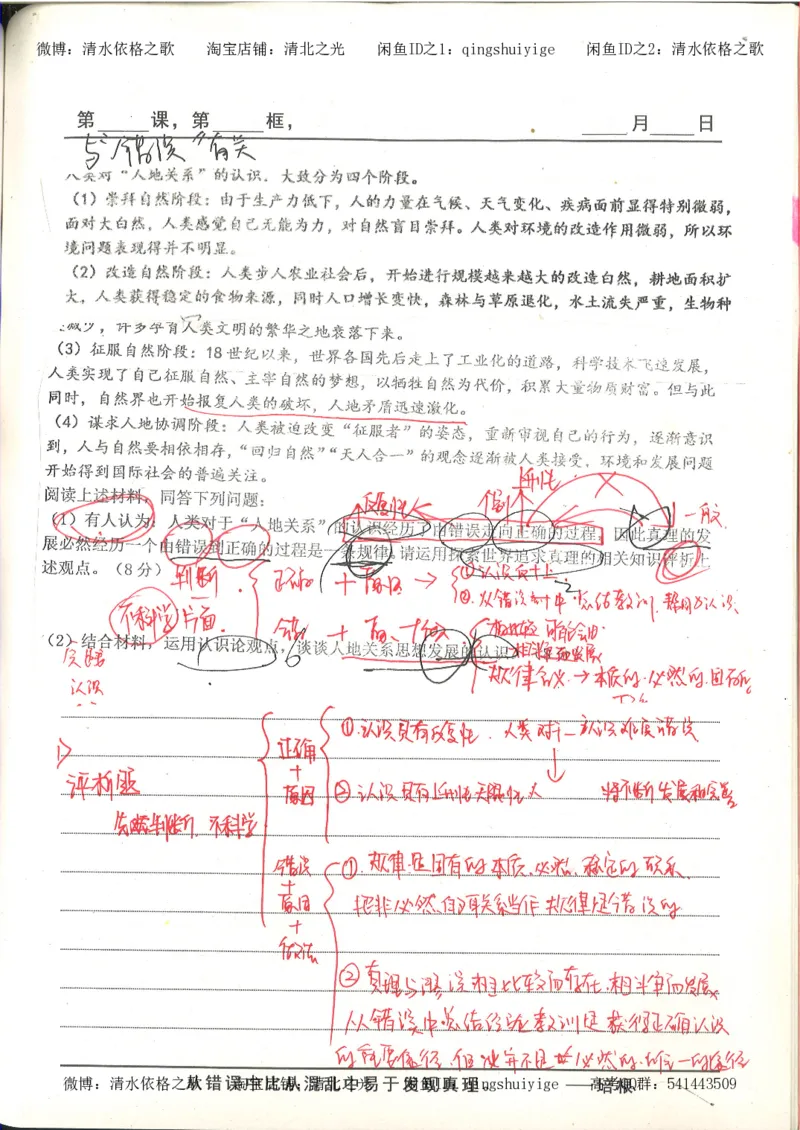 微博：清水依格之歌 淘宝店铺：清北之光 闲鱼ID之1：qingshuiyige 闲鱼ID之2：清水依格之歌
第 课，第 框， 月 日
与“错误”有关
人类对“人地关系”的认识，大致分为四个阶段。
（1）崇拜自然阶段：由于生产力低下，人的力量在气候、天气变化、疾病面前显得特别微弱，
面对大自然，人类感觉自己无能为力，对自然盲目崇拜。人类对环境的改造作用微弱，所以环
境问题表现得并不明显。
（2）改造自然阶段：人类步入农业社会后，开始进行规模越来越大的改造自然，耕地面积扩
大，人类获得稳定的食物来源，同时人口增长变快，森林与草原退化，水土流失严重，生物种
减少，许多孕育人类文明的繁华之地衰落下来。
（3）征服自然阶段：18世纪以来，世界各国先后走上了工业化的道路，科学技术飞速发展，
人类实现了自己征服自然、主宰自然的梦想，以牺牲自然为代价，积累大量物质财富。但与此
同时，自然界也开始报复人类的破坏，人地矛盾迅速激化。
（4）谋求人地协调阶段：人类被迫改变“征服者”的姿态，重新审视自己的行为，逐渐意识
到，人与自然要相依相存，“回归自然”“天人合一”的观念逐渐被人类接受，环境和发展问题
开始得到国际社会的普遍关注。
阅读上述材料，回答下列问题：
反复性 上升性
一般
（1）有人认为：人类对于“人地关系”的认识经历了由错误走向正确的过程，因此真理的发
展必然经历一个由错误到正确的过程是一条规律。请运用探索世界追求真理的相关知识评析上
述观点。（8分）
判断 正确 + 原因 → ①认识反 上
②从错误中总结教训，帮助认识
不科学 片面
错 + 原、
（2）结合材料，运用认识论观点，谈谈人地关系思想发展的认识。
规律 → 本质的 必然的 固有的
实践
认识
1）
评析题
先做判断，不科学
正确
+
原因
①认识具有反复性，人类对于一 认识难免错误
②认识具有上升性无限性 将不断发展和完善
错误
+
原因
+
做法
①规律是固有的本质、必然、稳定的联系，
把非必然的联系当作规律是错误的
②真理与谬误相比较而存在，相斗争而发展
从错误中总结经验教训是获得正确认识
的重要途径，但 并不是 必然的、唯一的途径
微博：清水依格之歌 淘宝店铺：清北之光 qingshuiyige 高考QQ群：541443509
从错误中比从混乱中易于发现真理。——培根